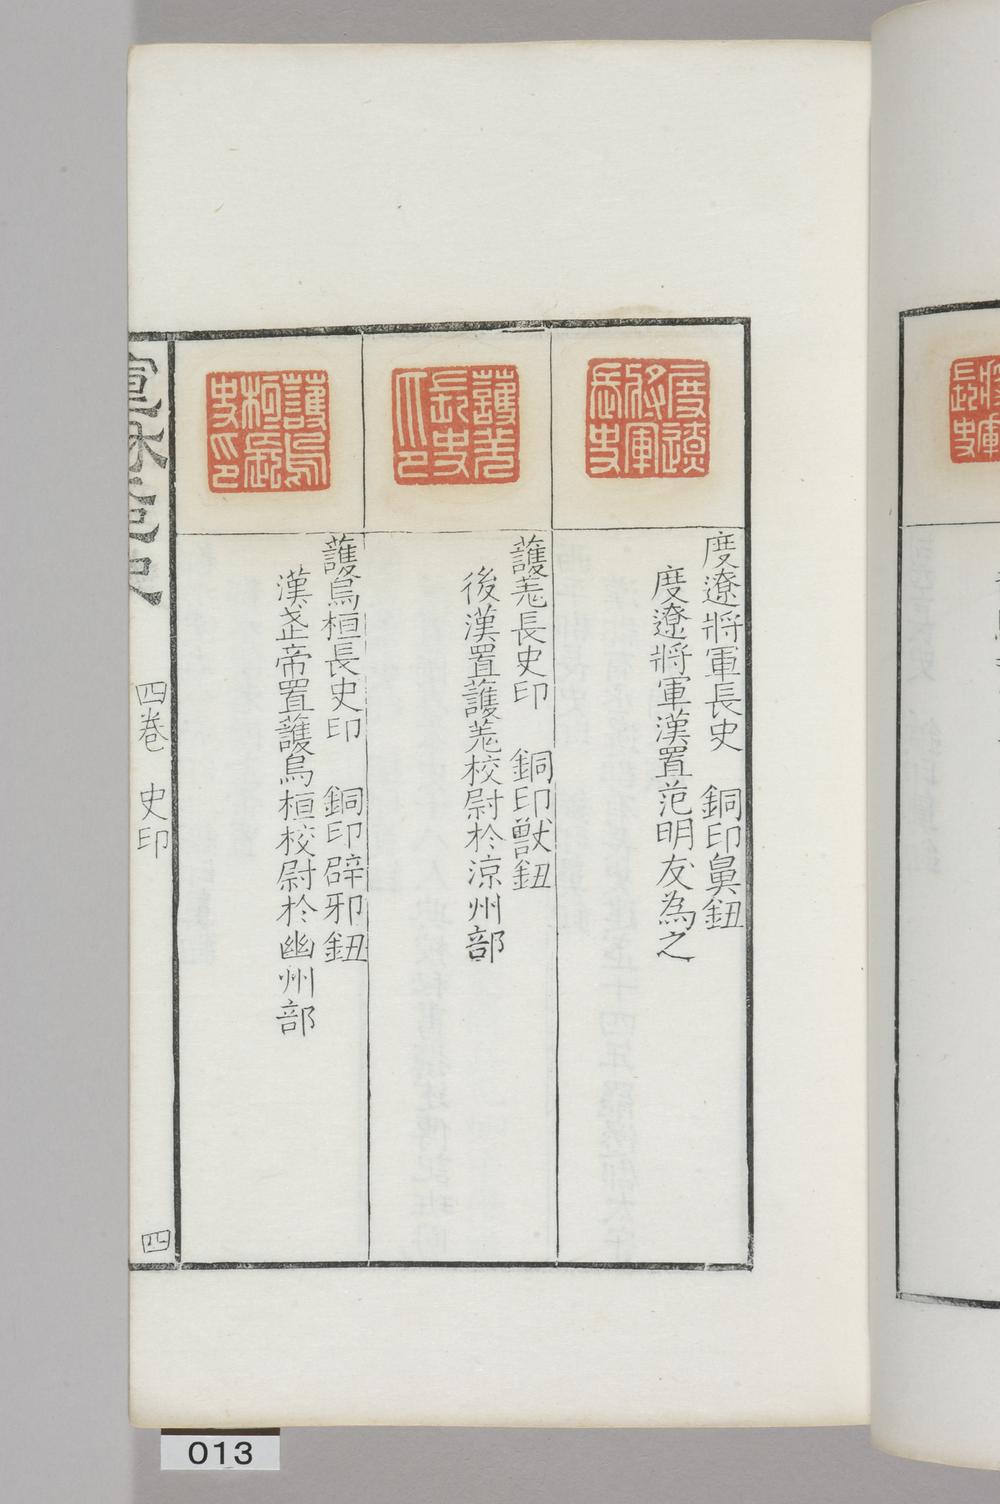 度遼將軍長史
度遼將軍長史 銅印鼻鈕
度遼將軍漢置范明友為之
護羌長史印
護羌長史印 銅印獸鈕
後漢置護羌校尉於涼州部
護烏桓長史印
護烏桓長史印 銅印辟邪鈕
漢武帝置護烏桓校尉於幽州部
四卷 史印
四
將軍
長史
013